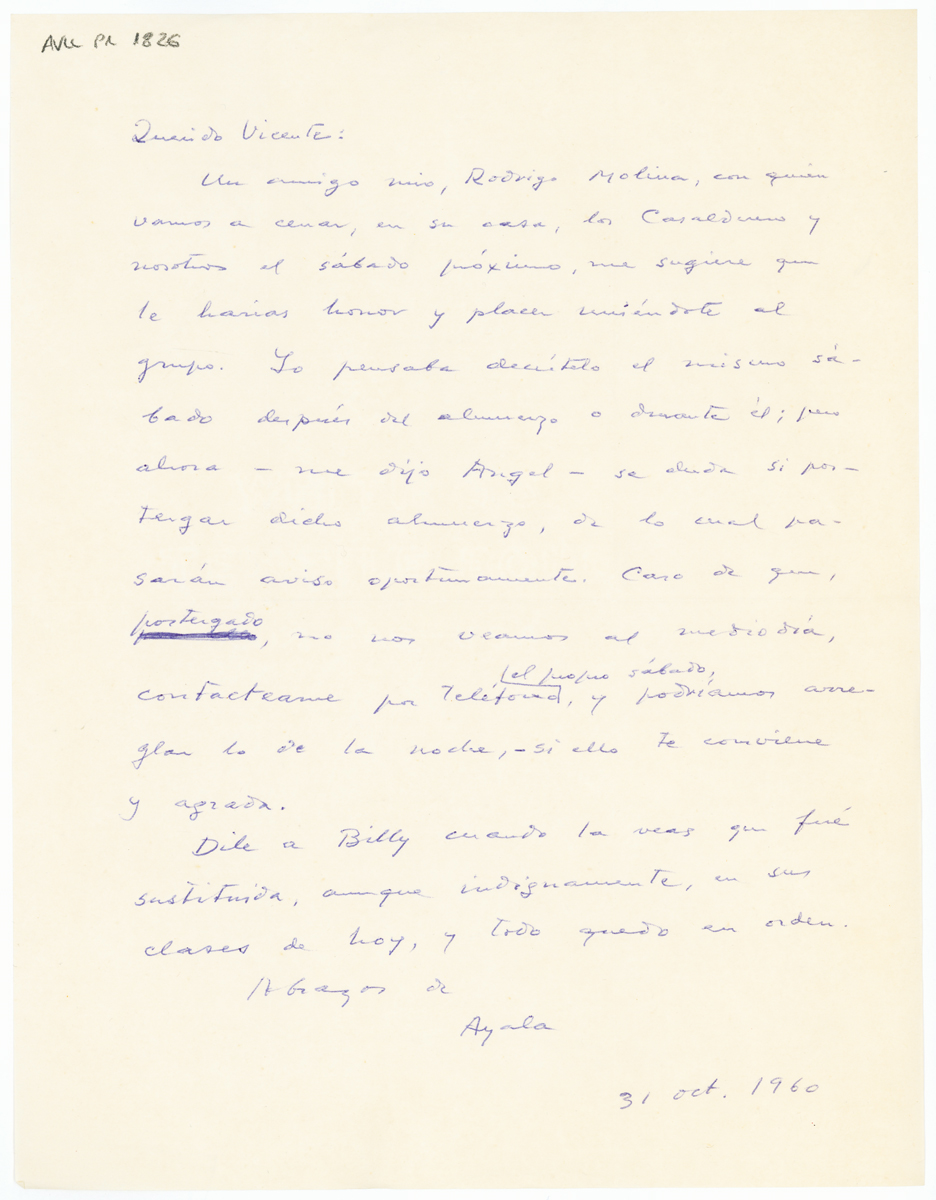 AVLL PR 1826
Querido Vicente:
Un amigo mio, Rodrigo Molina, con quien
vamos a cenar, en su casa, los Casalduero y
nosotros el sábado próximo, me sugiere que
le harías honor y placer uniéndote al
grupo. Yo pensaba decírtelo el mismo sá-
bado después del almuerzo o durante él; pero
ahora – me dijo Ángel – se duda si pos-
tergar dicho almuerzo, de lo cual pa-
sarán aviso oportunamente. Caso de que,
postergado, no nos veamos al mediodía,
el propio sábado,
contacteame por teléfono, y podríamos arre-
glar lo de la noche, – si ello te conviene
y agrada.
Dile a Billy cuando la veas que fué
sustituida, aunque indignamente, en sus
clases de hoy, y todo quedo en orden.
Abrazos de
Ayala
31 oct. 1960